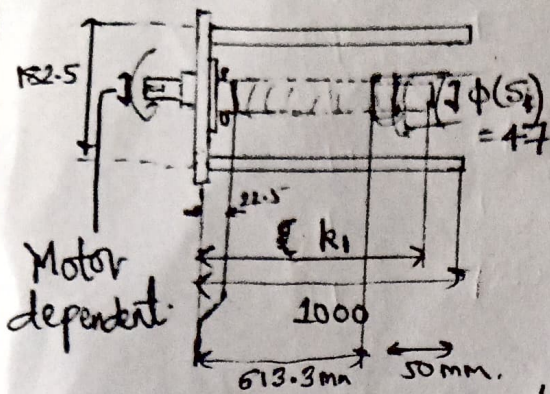 182.5
ϕ(S₁)
= 47
22.5
k₁
Motor
dependent.
1000
613.3mm
50mm.